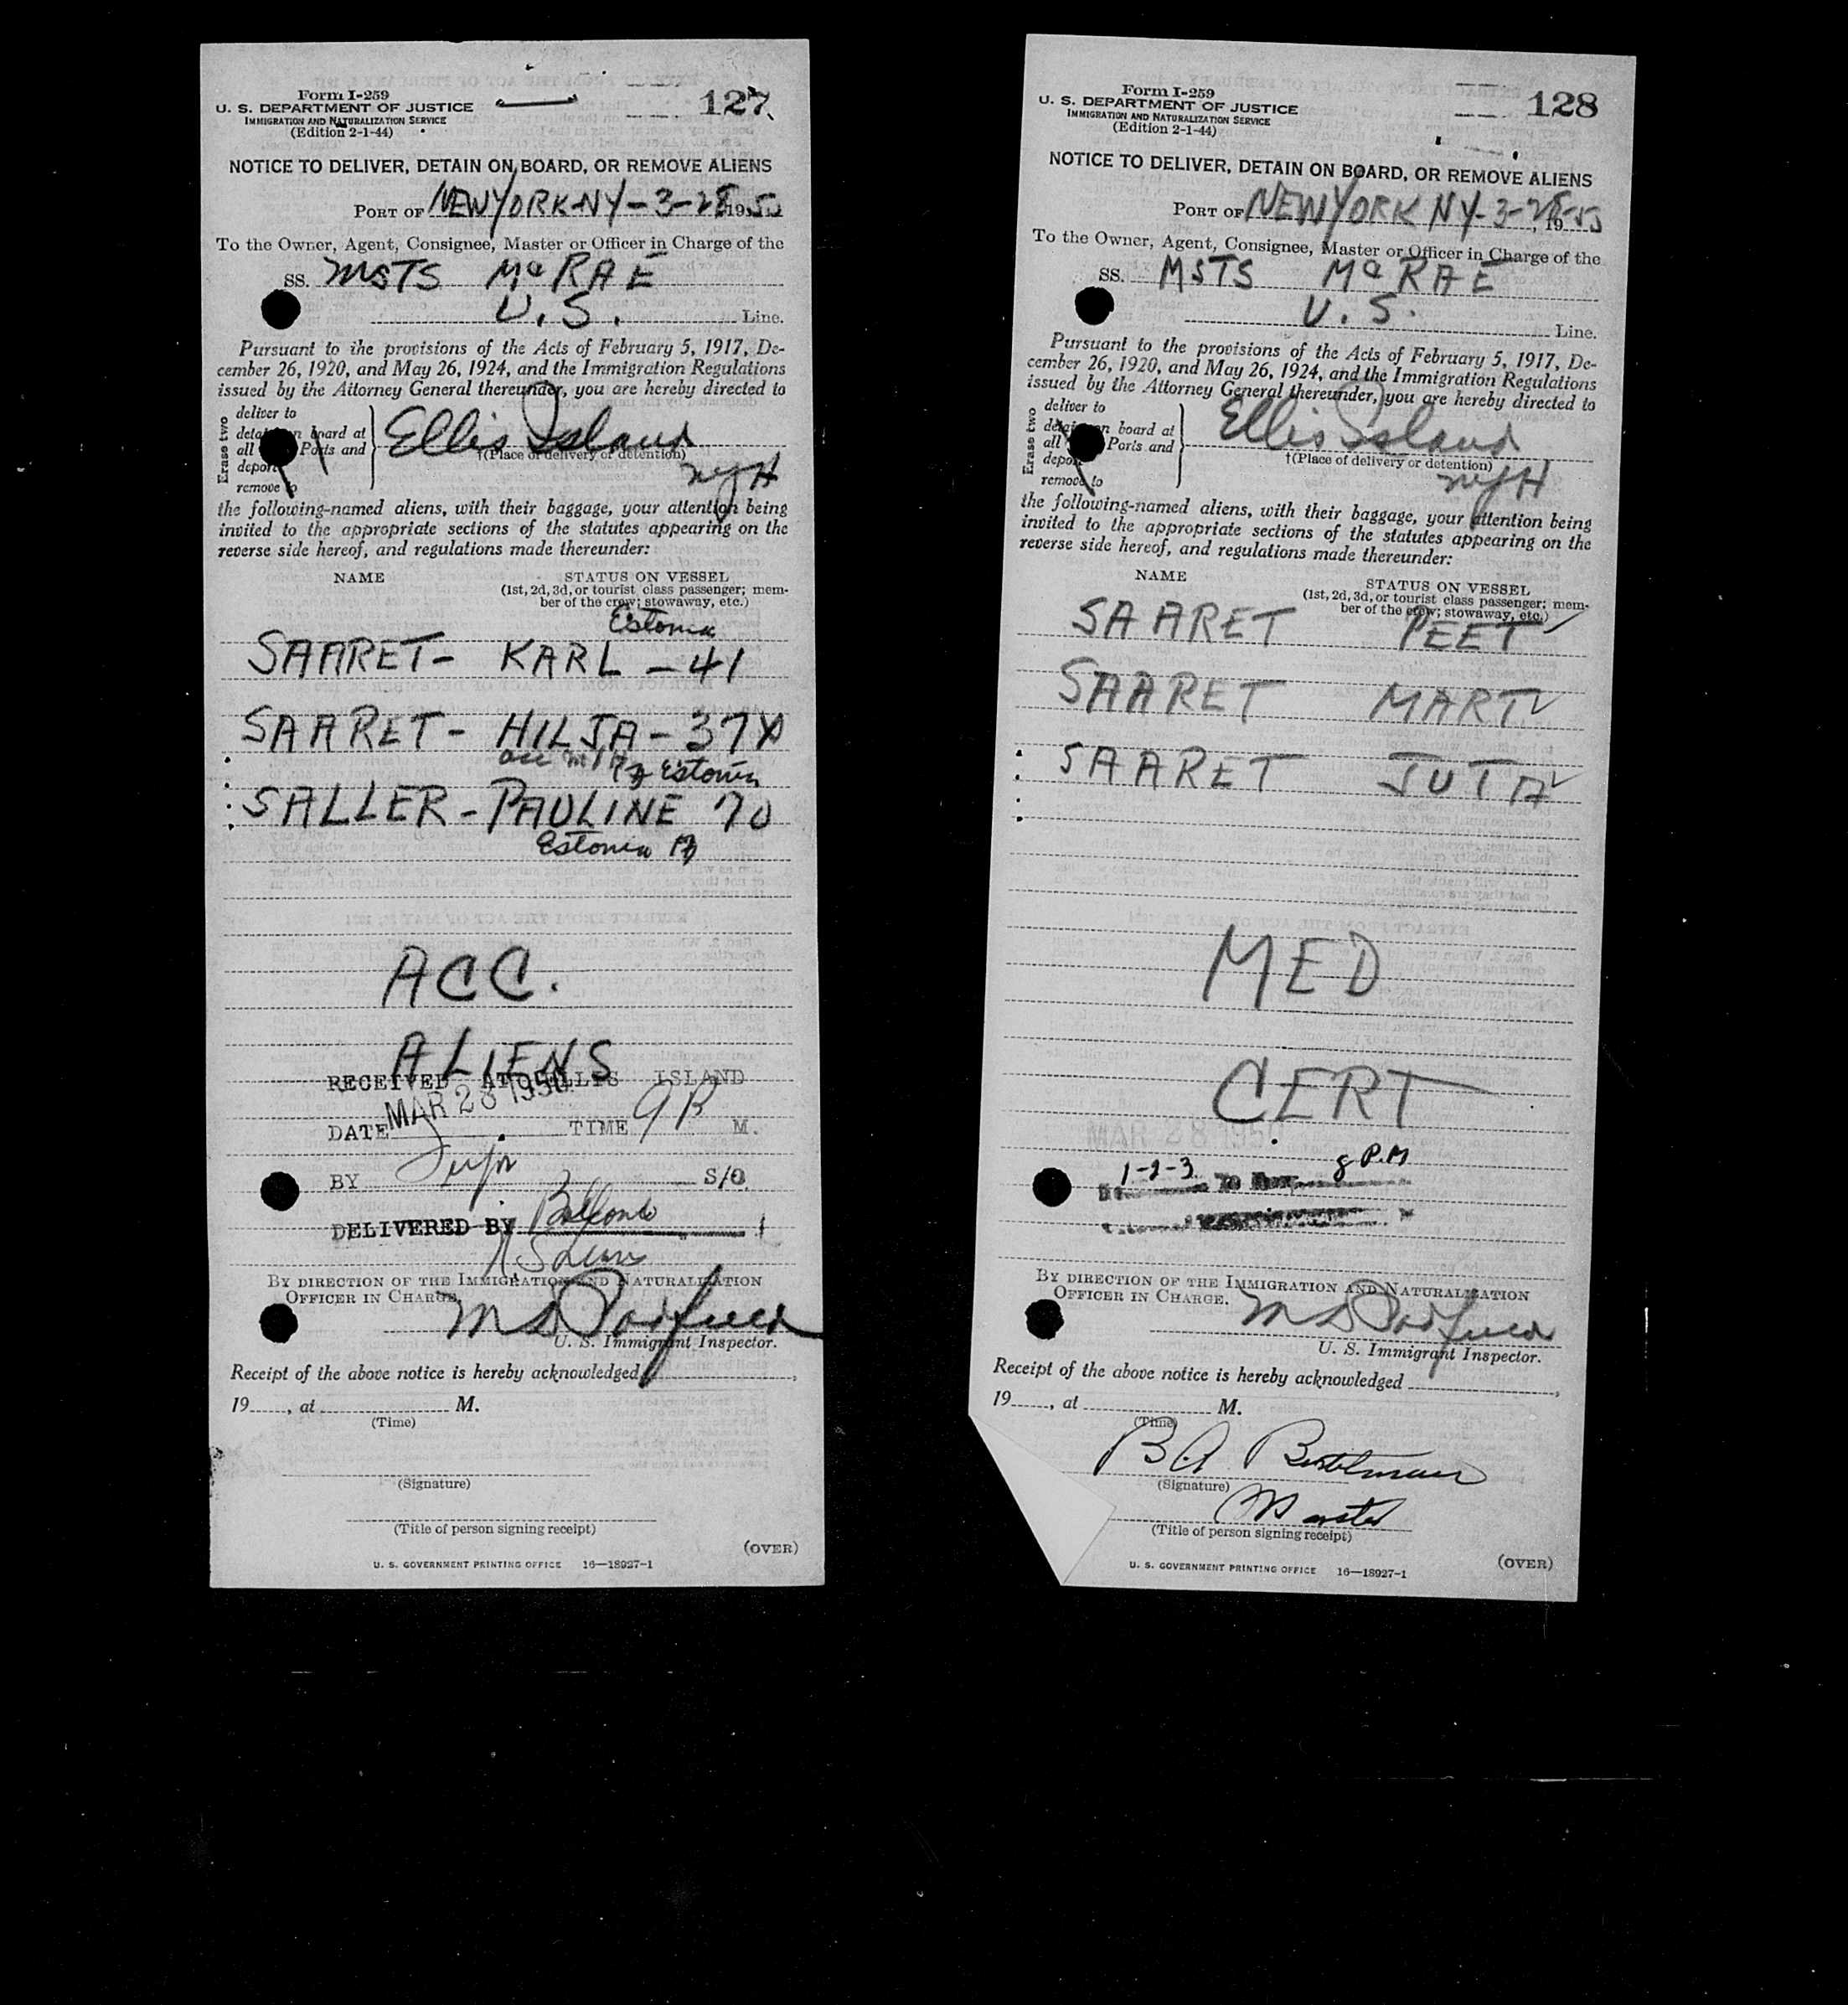 Form I-259
U. S. DEPARTMENT OF JUSTICE
IMMIGRATION AND NATURALIZATION SERVICE
(Edition 2-1-44)
127
NOTICE TO DELIVER, DETAIN ON BOARD, OR REMOVE ALIENS
PORT OF NEW YORK-NY-3-28 1950
To the Owner, Agent, Consignee, Master or Officer in Charge of the
SS. MSTS McRAE
U.S. Line.
Pursuant to the provisions of the Acts of February 5, 1917, De-
cember 26, 1920, and May 26, 1924, and the Immigration Regulations
issued by the Attorney General thereunder, you are hereby directed to
Erase two
deliver to
detain on board at
all Ports and
deport
remove to
Ellis Island
†(Place of delivery or detention)
NYH
the following-named aliens, with their baggage, your attention being
invited to the appropriate sections of the statutes appearing on the
reverse side hereof, and regulations made thereunder:
NAME STATUS ON VESSEL
(1st, 2d, 3d, or tourist class passenger; mem-
ber of the crew; stowaway, etc.)
Estonia
SAARET- KARL -41
SAARET- HILJA-37
acc Estonia
SALLER-PAULINE 70
Estonia
ACC.
ALIENS
RECEIVED AT ELLIS ISLAND
DATE MAR 28 1950 TIME 9 P M.
BY S/O
DELIVERED BY
BY DIRECTION OF THE IMMIGRATION AND NATURALIZATION
OFFICER IN CHARGE.
U. S. Immigrant Inspector.
Receipt of the above notice is hereby acknowledged
19, at M.
(Time)
(Signature)
(Title of person signing receipt)
(OVER)
U. S. GOVERNMENT PRINTING OFFICE 16—18927-1
Form I-259
U. S. DEPARTMENT OF JUSTICE
IMMIGRATION AND NATURALIZATION SERVICE
(Edition 2-1-44)
128
NOTICE TO DELIVER, DETAIN ON BOARD, OR REMOVE ALIENS
PORT OF NEW YORK NY-3-28-50, 19
To the Owner, Agent, Consignee, Master or Officer in Charge of the
SS. MSTS McRAE
U.S. Line.
Pursuant to the provisions of the Acts of February 5, 1917, De-
cember 26, 1920, and May 26, 1924, and the Immigration Regulations
issued by the Attorney General thereunder, you are hereby directed to
Erase two
deliver to
detain on board at
all Ports and
deport
remove to
Ellis Island
†(Place of delivery or detention)
NYH
the following-named aliens, with their baggage, your attention being
invited to the appropriate sections of the statutes appearing on the
reverse side hereof, and regulations made thereunder:
NAME STATUS ON VESSEL
(1st, 2d, 3d, or tourist class passenger; mem-
ber of the crew; stowaway, etc.)
SAARET PEET
SAARET MART
SAARET JUTA
MED
CERT
MAR 28 1950
1-2-3 8 P.M
BY DIRECTION OF THE IMMIGRATION AND NATURALIZATION
OFFICER IN CHARGE.
U. S. Immigrant Inspector.
Receipt of the above notice is hereby acknowledged
19, at M.
(Time)
(Signature)
Master
(Title of person signing receipt)
(OVER)
U. S. GOVERNMENT PRINTING OFFICE 16—18927-1